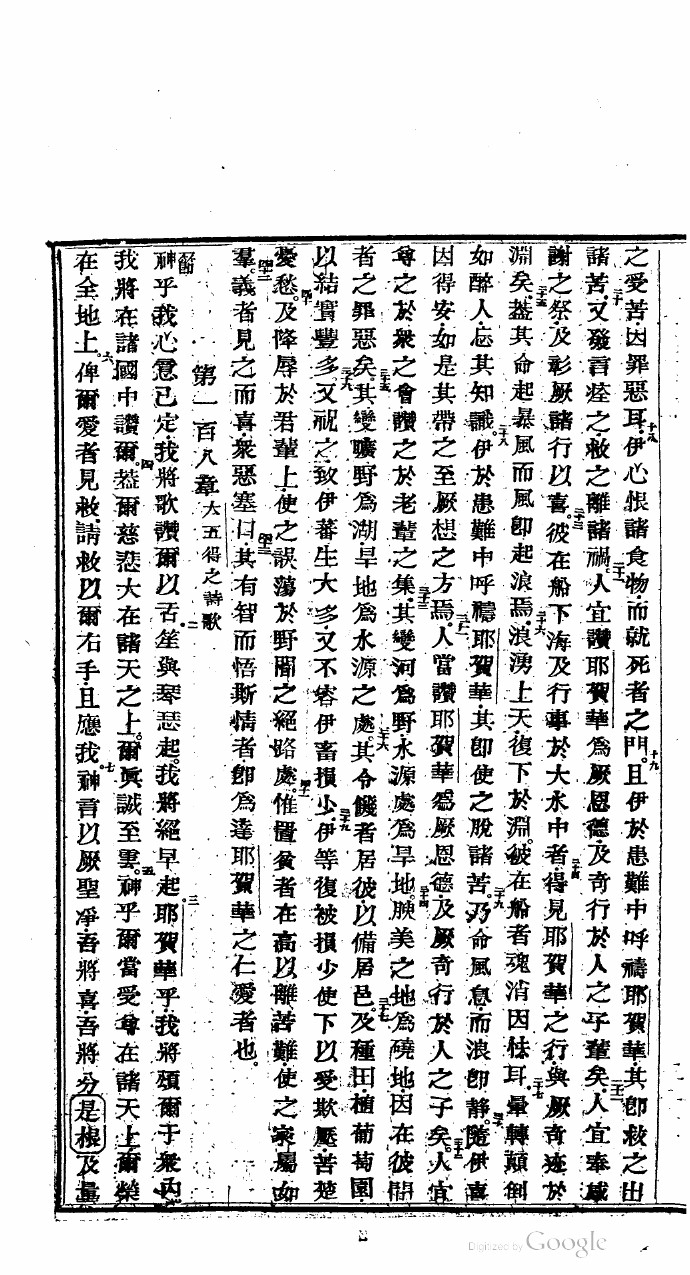 之受苦因罪惡耳十八伊心恨諸食物而就死者之門十九且伊於患難中呼禱耶賀華其卽救之出
諸苦二十又發言痊之救之離諸禍二十一人宜讚耶賀華爲厥恩德及奇行於人之子輩矣二十二人宜奉感
謝之祭及彰厥諸行以喜二十三彼在船下海及行事於大水中者二十四得見耶賀華之行與厥奇迹於
淵矣二十五葢其命起暴風而風卽起浪焉二十六浪湧上天復下於淵彼在船者魂消因怯耳二十七暈轉顛倒
如醉人忘其知識二十八伊於患難中呼禱耶賀華其卽使之脫諸苦二十九乃命風息而浪卽靜三十隨伊喜
因得安如是其帶之至厥想之方焉三十一人當讚耶賀華爲厥恩德及厥奇行於人之子矣三十二人宜
尊之於衆之會讚之於老輩之集三十三其變河爲野水源處爲旱地三十四腴美之地爲磽地因在彼居
者之罪惡矣三十五其變曠野爲湖旱地爲水源之處三十六其令饑者居彼以備居邑三十七及種田植葡萄園
以結實豐多三十八又祝之致伊蕃生大多又不容伊畜損少三十九伊等復被損少使下以受欺壓苦楚
憂愁四十及降辱於君輩上使之誤蕩於野閒之絕路處四十一惟置貧者在高以離苦難使之家屬如
羣四十二義者見之而喜衆惡塞口四十三其有智而悟斯情者卽爲達耶賀華之仁愛者也
第一百八章 大五得之詩歌
首節神乎我心意已定我將歌讚爾以舌二笙與琴瑟起我將絕早起三耶賀華乎我將頌爾于衆內
我將在諸國中讚爾四葢爾慈悲大在諸天之上爾眞誠至雲五神乎爾當受尊在諸天上爾榮
在全地上六俾爾愛者見救請救以爾右手且應我七神言以厥聖淨吾將喜吾將分是根及量
Digitized by Google